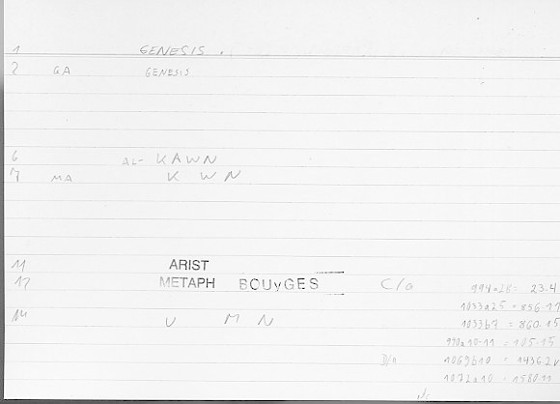 1 GENESIS .
2 GA GENESIS
6 AL- KAWN
7 MA K W N
11 ARIST
12 METAPH BOUyGES C/a 994a26= 23.4
1033a25 = 856.17
14 U M N 1033b7 = 860.15
990a10-11 = 105.15
D/a 1069b10 = 1436.2
1072a10 = 1580.11